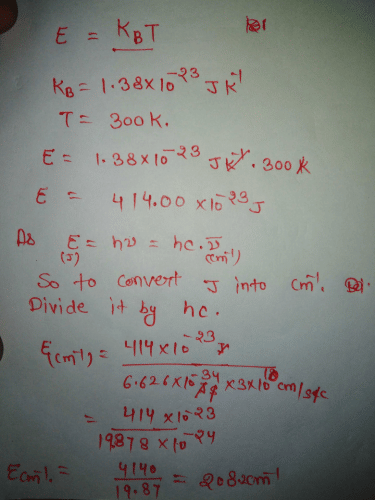 E = K_B T
K_B = 1.38×10^-23 J K^-1
T = 300 K.
E = 1.38×10^-23 J K^-1 . 300 K
E = 414.00 ×10^-23 J
As E = hν = hc.ν̅
(J) (cm^-1)
So to convert J into cm^-1.
Divide it by hc.
E(cm^-1) = 414×10^-23 J
6.626×10^-34 J s ×3×10^10 cm/sec
= 414 ×10^-23
19.878 ×10^-24
E cm^-1. = 4140 = 208.2cm^-1
19.87